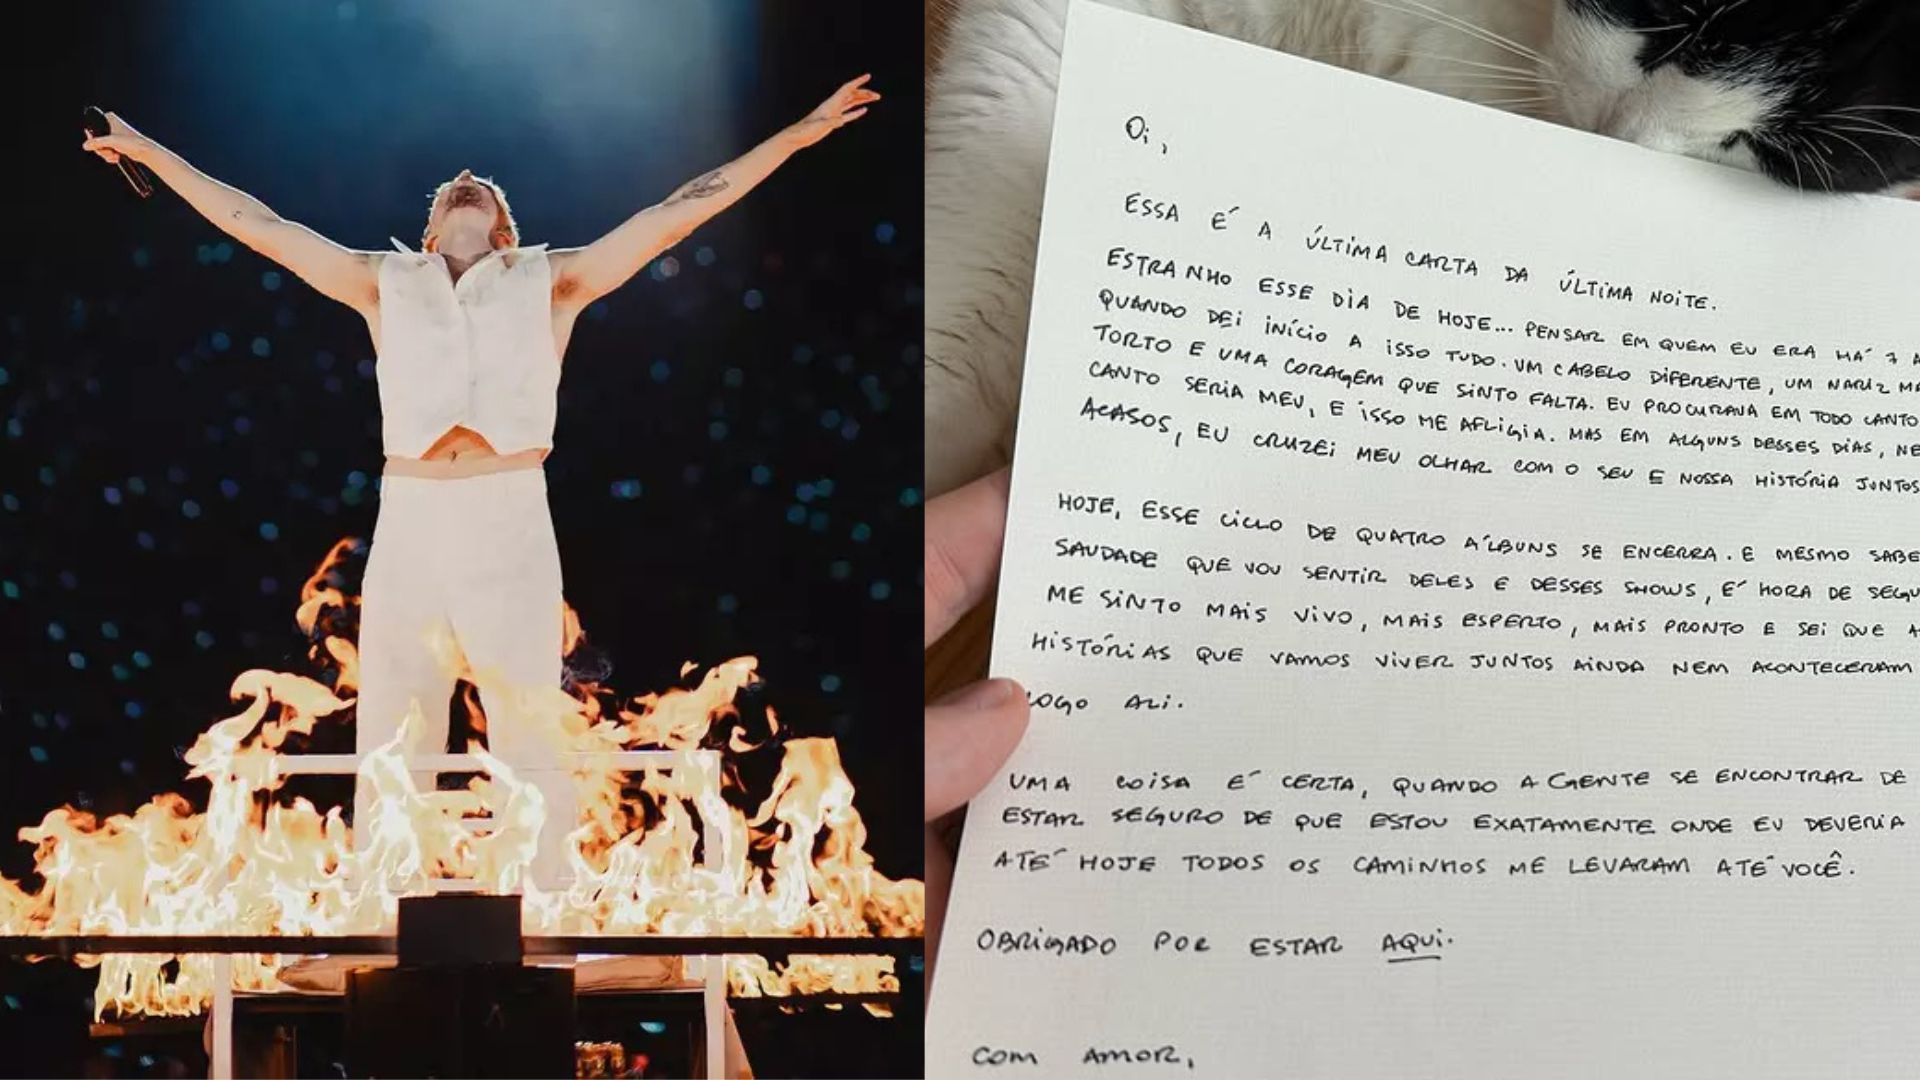 Oi,
ESSA É A ÚLTIMA CARTA DA ÚLTIMA NOITE.
ESTRANHO ESSE DIA DE HOJE... PENSAR EM QUEM EU ERA HÁ 7 A
QUANDO DEI INÍCIO A ISSO TUDO. UM CABELO DIFERENTE, UM NARIZ MA
TORTO E UMA CORAGEM QUE SINTO FALTA. EU PROCURAVA EM TODO CANTO
CANTO SERIA MEU, E ISSO ME AFLIGIA. MAS EM ALGUNS DESSES DIAS, NE
ACASOS, EU CRUZEI MEU OLHAR COM O SEU E NOSSA HISTÓRIA JUNTOS
HOJE, ESSE CICLO DE QUATRO ÁLBUNS SE ENCERRA. E MESMO SABE
SAUDADE QUE VOU SENTIR DELES E DESSES SHOWS, É HORA DE SEGU
ME SINTO MAIS VIVO, MAIS ESPERTO, MAIS PRONTO E SEI QUE A
HISTÓRIAS QUE VAMOS VIVER JUNTOS AINDA NEM ACONTECERAM
LOGO ALI.
UMA COISA É CERTA, QUANDO A GENTE SE ENCONTRAR DE
ESTAR SEGURO DE QUE ESTOU EXATAMENTE ONDE EU DEVERIA
ATÉ HOJE TODOS OS CAMINHOS ME LEVARAM ATÉ VOCÊ.
OBRIGADO POR ESTAR AQUI.
COM AMOR,